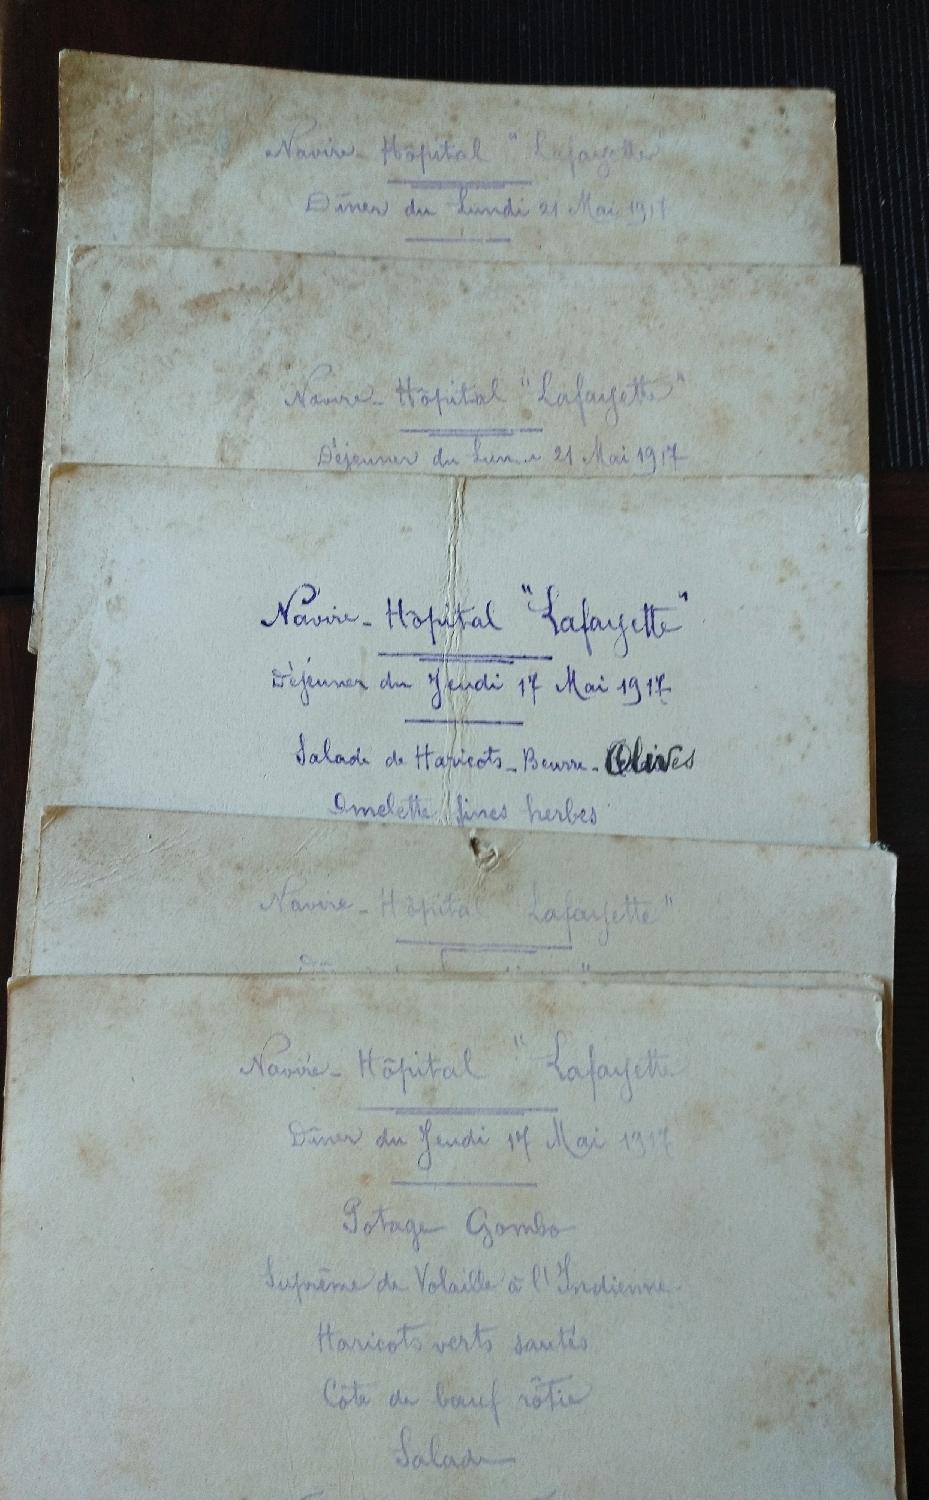 Navire-Hôpital "Lafayette"
Dîner du Lundi 21 Mai 1917
Navire-Hôpital "Lafayette"
Déjeuner du Lundi 21 Mai 1917
Navire-Hôpital "Lafayette"
Déjeuner du Jeudi 17 Mai 1917
Salade de Haricots-Beurre-Olives
Omelette fines herbes
Navire-Hôpital "Lafayette"
Navire-Hôpital "Lafayette
Dîner du Jeudi 17 Mai 1917
Potage Gombo
Suprême de Volaille à l'Indienne
Haricots verts sautés
Côte de bœuf rôtie
Salade